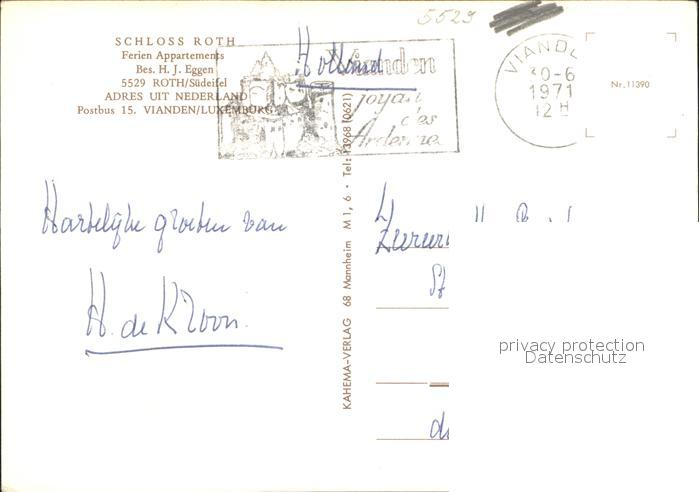 5529
SCHLOSS ROTH
Ferien Appartements
Bes. H. J. Eggen
5529 ROTH/Südeifel
ADRES UIT NEDERLAND
Postbus 15. VIANDEN/LUXEMBURG
Holland
Vianden
joyau
des
Ardennes
VIANDE
30-6
1971
12 H
Nr. 11390
Hartelijke groeten van
H. de Kroon.
KAHEMA-VERLAG 68 Mannheim M 1, 6 · Tel: 13968 (0621)
privacy protection
Datenschutz